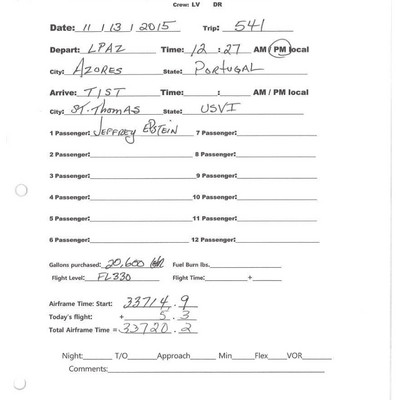 Crew: LV DR
Date: 11 | 13 | 2015 Trip: 541
Depart: LPAZ Time: 12 : 27 AM / PM local
City: AZORES State: PORTUGAL
Arrive: TIST Time: : AM / PM local
City: ST. THOMAS State: USVI
1 Passenger: JEFFREY EPSTEIN 7 Passenger:
2 Passenger: 8 Passenger:
3 Passenger: 9 Passenger:
4 Passenger: 10 Passenger:
5 Passenger: 11 Passenger:
6 Passenger: 12 Passenger:
Gallons purchased: 20,600 Fuel Burn lbs.
Flight Level: FL330 Flight Time: +
Airframe Time: Start: 33714.9
Today's flight: + 5.3
Total Airframe Time = 33720.2
Night: T/O Approach Min Flex VOR
Comments: